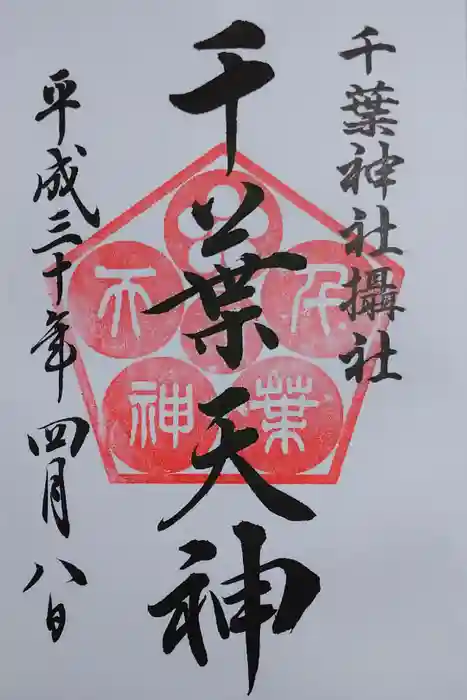 千葉神社攝社
千葉天神
平成三十年四月八日
千葉天神